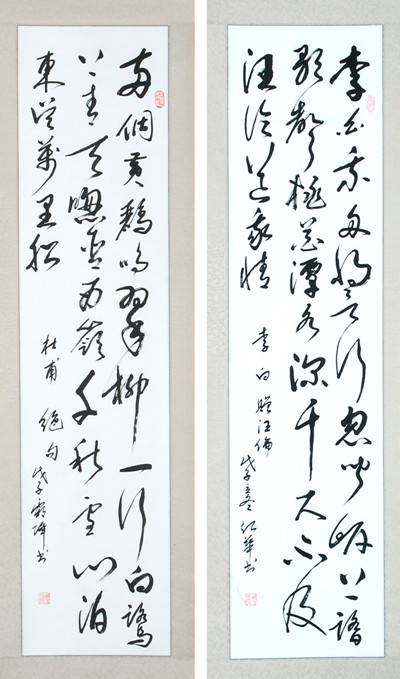 李白乘舟将欲行忽闻岸上踏
歌聲桃花潭水深千尺不及
汪伦送我情
李白 赠汪倫 戊子冬 红華书
两個黄鸝鸣翠柳一行白鷺
上青天窗含西嶺千秋雪门泊
東吴萬里船
杜甫 絕句 戊子霜降书